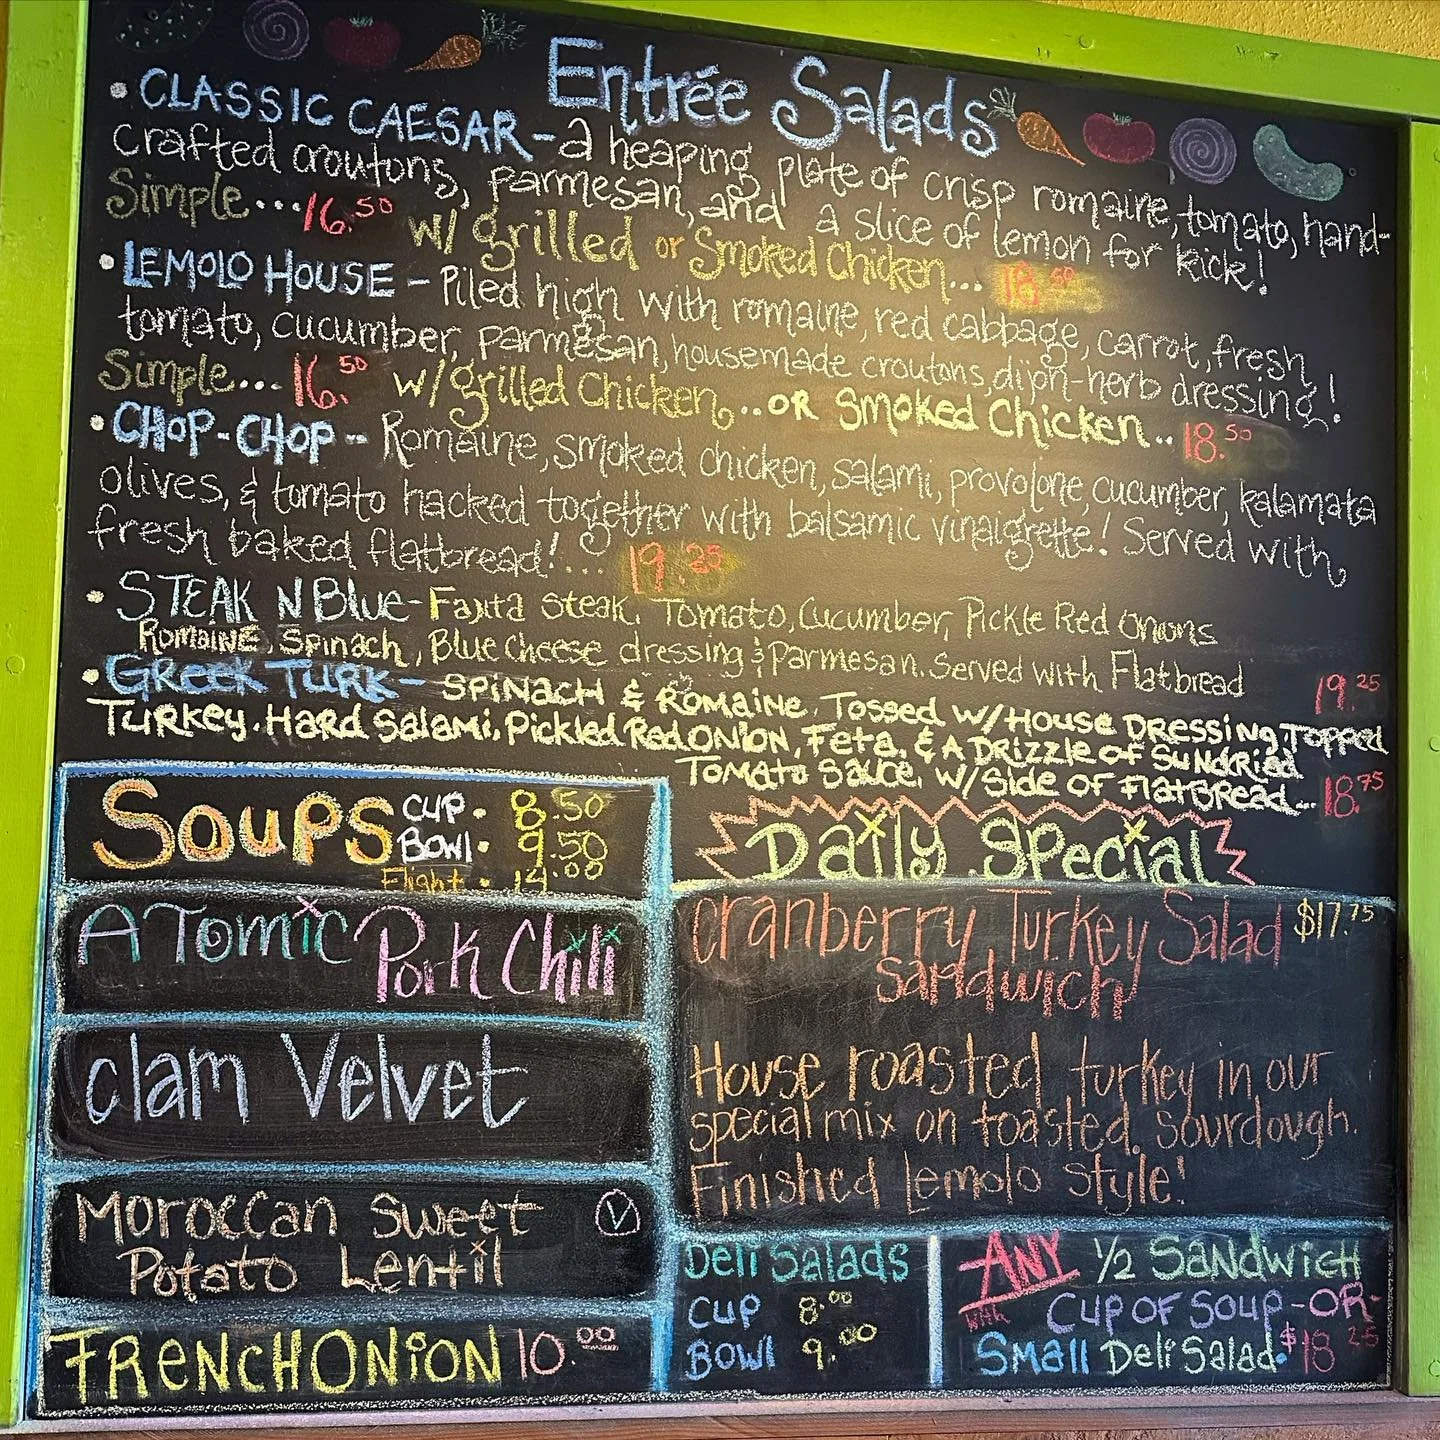 Entrée Salads
• CLASSIC CAESAR - a heaping plate of crisp romaine, tomato, hand-
crafted croutons, parmesan, and a slice of lemon for kick!
Simple...16.50 w/ grilled or Smoked Chicken... 18.50
• LEMOLO HOUSE - Piled high with romaine, red cabbage, carrot, fresh
tomato, cucumber, parmesan, housemade croutons, dijon-herb dressing!
Simple... 16.50 w/grilled Chicken...OR Smoked Chicken.. 18.50
• CHOP-CHOP -- Romaine, smoked chicken, salami, provolone, cucumber, kalamata
olives, & tomato hacked together with balsamic vinaigrette! Served with
fresh baked flatbread!... 19.25
• STEAK N Blue- Fajita Steak, Tomato, Cucumber, Pickle Red Onions
Romaine, Spinach, Blue Cheese dressing & Parmesan. Served with Flatbread 19.25
• GREEK TURK - SPINACH & ROMAINE, TOSSED W/ HOUSE DRESSING, TOPPED
TURKEY, HARD SALAMI, PICKLED RED ONION, FETA, & A DRIZZLE OF SUNDRIED
TOMATO SAUCE, W/ SIDE OF FLATBREAD... 18.75
SOUPS
CUP. 8.50
BOWl. 9.50
Flight. 14.00
ATomic Pork Chili
clam Velvet
Moroccan Sweet V
Potato Lentil
FRENCH ONiON 10.00
Daily Special
cranberry Turkey Salad $17.75
sandwich
House roasted turkey in our
special mix on toasted sourdough.
Finished Lemolo style!
Deli Salads
CUP 8.00
BOWl 9.00
ANY 1/2 SANDWiCH
with CUP OF SOUP -OR-
SMAll Deli Salad. $18.25